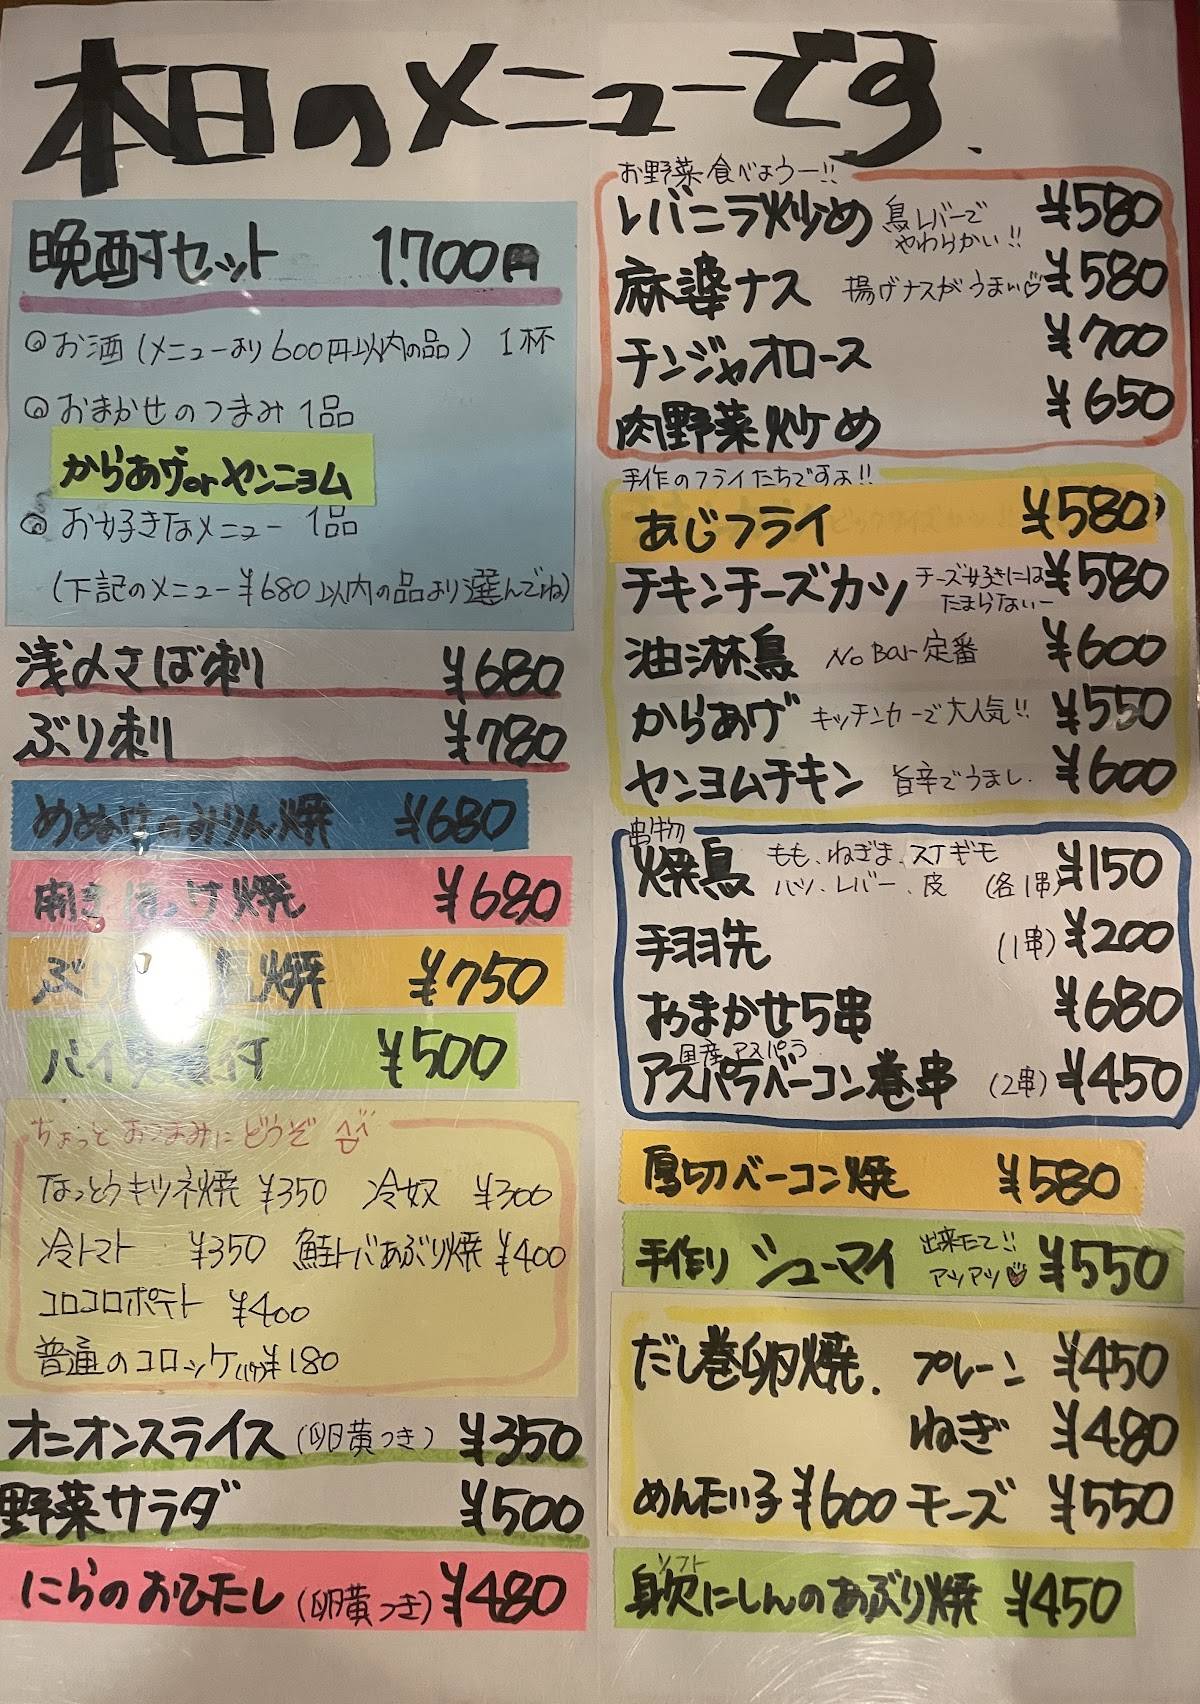 本日のメニューです
晩酌セット 1.700円
◎お酒(メニューより600円以内の品) 1杯
◎おまかせのつまみ 1品
からあげorヤンニョム
◎お好きなメニュー 1品
(下記のメニュー¥680以内の品より選んでね)
浅〆さば刺 ¥680
ぶり刺 ¥780
めぬけのみりん焼 ¥680
開きほっけ焼 ¥680
ぶり 焼 ¥750
バイ 付 ¥500
ちょっとおつまみにどうぞ
なっとうキツネ焼 ¥350 冷奴 ¥300
冷トマト ¥350 鮭トバあぶり焼 ¥400
コロコロポテト ¥400
普通のコロッケ(1ヶ)¥180
オニオンスライス(卵黄つき) ¥350
野菜サラダ ¥500
にらのおひたし(卵黄つき) ¥480
お野菜食べようー!!
レバニラ炒め 鳥レバーでやわらかい!! ¥580
麻婆ナス 揚げナスがうまい♡ ¥580
チンジャオロース ¥700
肉野菜炒め ¥650
手作のフライたちですょ!!
あじフライ ¥580
チキンチーズカツ チーズ好きにはたまらないー ¥580
油淋鳥 No Bar定番 ¥600
からあげ キッチンカーで大人気!! ¥550
ヤンヨムチキン 旨辛でうまし. ¥600
串物
焼鳥 もも、ねぎま、スナギモ
ハツ、レバー、皮 (各1串) ¥150
手羽先 (1串) ¥200
おまかせ5串 ¥680
国産アスパラ
アスパラベーコン巻串 (2串) ¥450
厚切ベーコン焼 ¥580
手作り シューマイ 出来たて!! アツアツ♡ ¥550
だし巻卵焼. プレーン ¥450
ねぎ ¥480
めんたい子 ¥600 チーズ ¥550
ソフト
身欠にしんのあぶり焼 ¥450